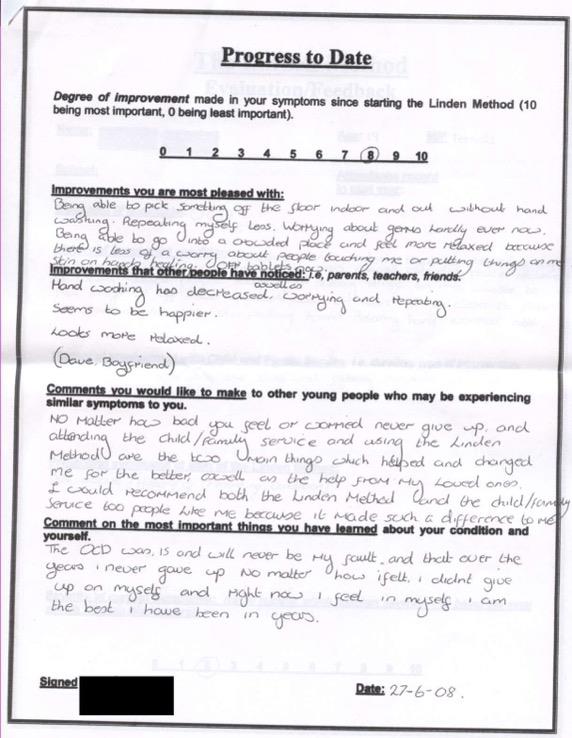 Progress to Date
Degree of improvement made in your symptoms since starting the Linden Method (10
being most important, 0 being least important).
0 1 2 3 4 5 6 7 8 9 10
Improvements you are most pleased with:
Being able to pick something off the floor indoor and out without hand
washing. Repeating myself less. Worrying about germs hardly ever now.
Being able to go into a crowded place and feel more relaxed because
there is less of a worry about people touching me or putting things on me
skin on hands healing. OFF tablets now.
Improvements that other people have noticed: i.e, parents, teachers, friends.
Hand washing has decreased, aswell as worrying and repeating.
Seems to be happier.
Looks more relaxed.
(Dave, Boyfriend)
Comments you would like to make to other young people who may be experiencing
similar symptoms to you.
NO Matter how bad you feel or worried never give up, and
attending the child/family service and using the Linden
Method are the two main things which helped and changed
me for the better, aswell as the help from My Loved ones.
I would recommend both the Linden Method and the child/family
Service too people like me because it made such a difference to me
Comment on the most important things you have learned about your condition and
yourself.
The OCD was, is and will never be my fault. and that over the
years i never gave up No matter how i felt. i didnt give
up on myself and right now i feel in myself i am
the best i have been in years.
Signed
Date: 27-6-08.